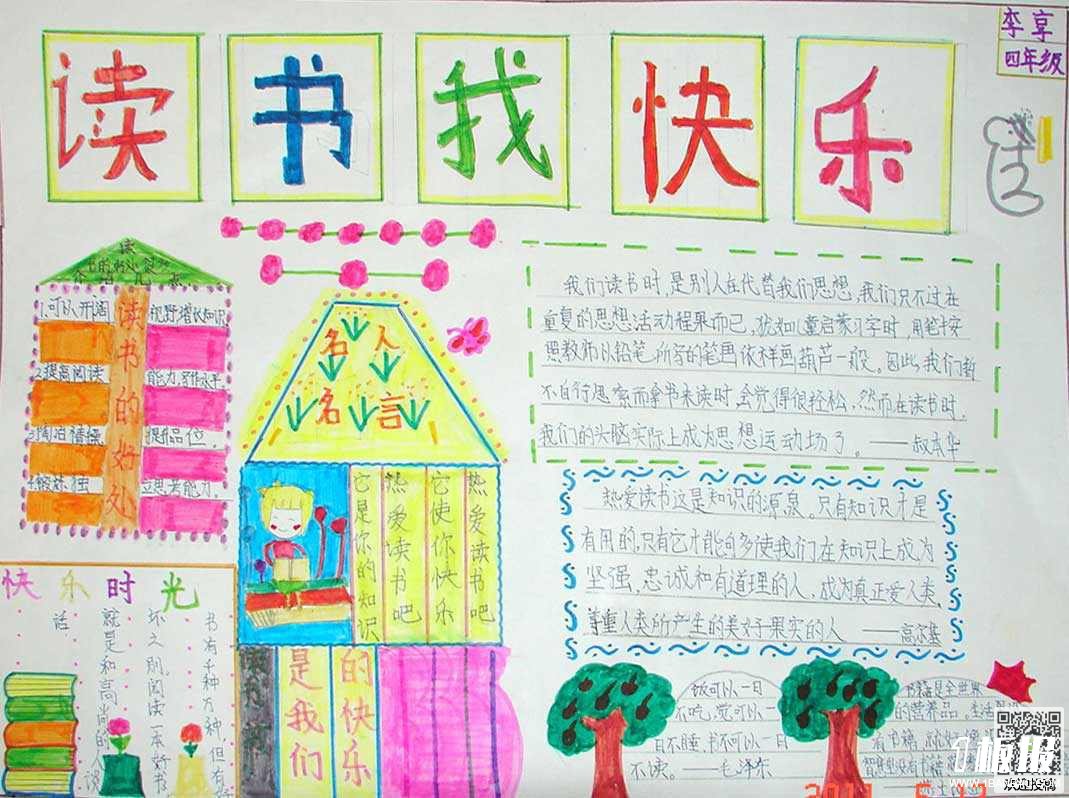 读书我快乐
李享
四年级
读
1.可以开阔视野增长知识
2.提高阅读能力,写作水平
3.陶冶情操提品位。
4.锻炼独立思考能力。
读书的好处
名人
名言
我们读书时,是别人在代替我们思想,我们只不过在
重复的思想活动程果而已,犹如儿童启蒙习字时,用笔按
照教师以铅笔所写的笔画依样画葫芦一般。因此,我们暂
不自行思索而拿书来读时,会觉得很轻松,然而在读书时,
我们的头脑实际上成为思想运动场了。——叔本华
热爱读书这是知识的源泉。只有知识才是
有用的,只有它才能句多使我们在知识上成为
坚强,忠诚和有道理的人,成为真正爱人类、
尊重人类所产生的美好果实的人——高尔基
热爱读书吧
它使你快乐
热爱读书吧
它是你的知识
的快乐
是我们
快乐时光
书有千种万种但有
坏之别,阅读一本好书
就是和高尚的人说
话
饭可以一日
不吃,觉可以一
日不睡,书不可以一日
不读。——毛泽东
书籍是全世界
的营养品。生活里没
有书籍,就好像
智慧里没有书籍
板报
欢迎投稿